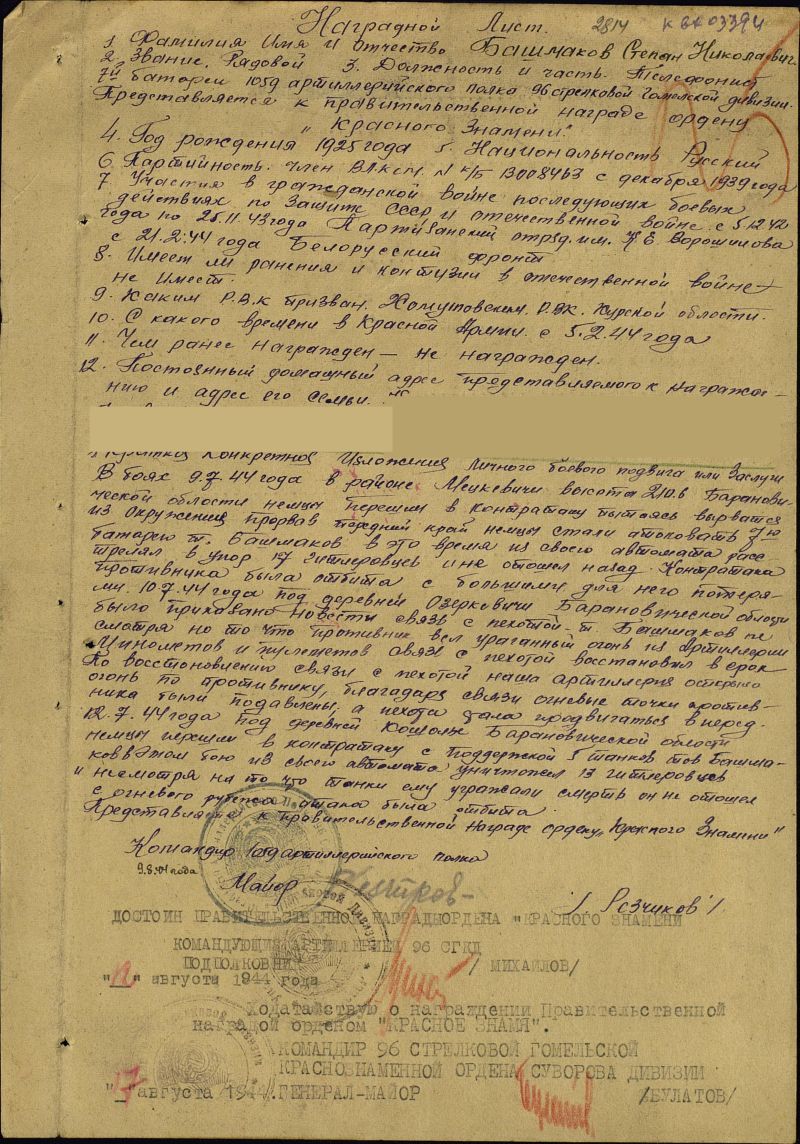 Наградной Лист. 2814 К ВХ 03394
1. Фамилия Имя и отчество Башмаков Степан Николаевич
2. Звание. Рядовой 3. Должность и часть. Телефонист
7й батареи 1059 артиллерийского полка 96 стрелковой Гомельской дивизии.
Представляется к правительственной награде ордену
"Красного Знамени".
4. Год рождения 1925 года 5. Национальность Русский
6. Партийность. член ВЛКСМ. N к/б 13008463 с декабря 1939 года
7. Участия в гражданской войне последующих боевых
действиях по защите СССР и отечественной войне. с 5.12.42
года по 25.11.43 года Партизанский отряд. им. К Е Ворошилова
с 21.2.44 года Белорусский фронт
8. Имеет ли ранения и контузии в отечественной войне
не имеет.
9. Каким Р.В.К призван. Хомутовским. Р.В.К. Курской области.
10. С какого времени в Красной Армии. с 5.2.44 года
11. Чем ранее награжден — не награжден.
12. Постоянный домашный адрес представляемого к награжде-
нию и адрес его семьи.
Конкретное Изложения личного боевого подвига или Заслуги
В боях 9.7.44 года в районе Мецкевичи высота 210.6 Баранови-
ческой области немцы перешли в контратаку пытаясь вырватся
из окружения прорвав передний край немцы стали атоковать 7ю
батарею т. Башмаков в это время из своего автомата расс
трелял в упор 17 гитлеровцев и не отошел назад. Контратака
противника была отбита с большими для него потеря-
ми. 10.7.44 года под деревней Озеркевичи Барановической области
было приказано новести связь с пехотой. т. Башмаков не
смотря но то что противник вел ураганный огонь из артиллерии
Минометов и пулеметов связь с пехотой восстановил в срок
По восстоновлению связи с пехотой наша артиллерия открыла
огонь по противнику, благодаря связи огневые точки против-
ника были подавлены, а пехота стала продвигаться вперед.
12.7.44 года под деревней Барановической области
немцы перешли в контратаку с поддержкой 5 танков тов Башма-
ков в этом бою из своего автомата уничтожел 13 гитлеровцев
"несмотря на то что танки ему угражали смерть он не отошел
с огневого рубежа атака была отбита.
Представляется к правительственной награде ордену "Красного Знамени"
Командир 1059 артиллерийского полка
9.8.44 года
Майор / Резчиков /
ДОСТОИН ПРАВИТЕЛЬСТВЕННОЙ НАГРАДЫ ОРДЕНА "КРАСНОГО ЗНАМЕНИ
КОМАНДУЮЩИЙ АРТИЛЛЕРИЕЙ 96 СГКД
ПОДПОЛКОВНИК / МИХАЙЛОВ/
"12" августа 1944 года
Ходатайствую о награждении Правительственной
наградой орденом "КРАСНОЕ ЗНАМЯ".
КОМАНДИР 96 СТРЕЛКОВОЙ ГОМЕЛЬСКОЙ
КРАСНОЗНАМЕННОЙ ОРДЕНА СУВОРОВА ДИВИЗИИ
"17" августа 1944г. ГЕНЕРАЛ-МАЙОР /БУЛАТОВ/